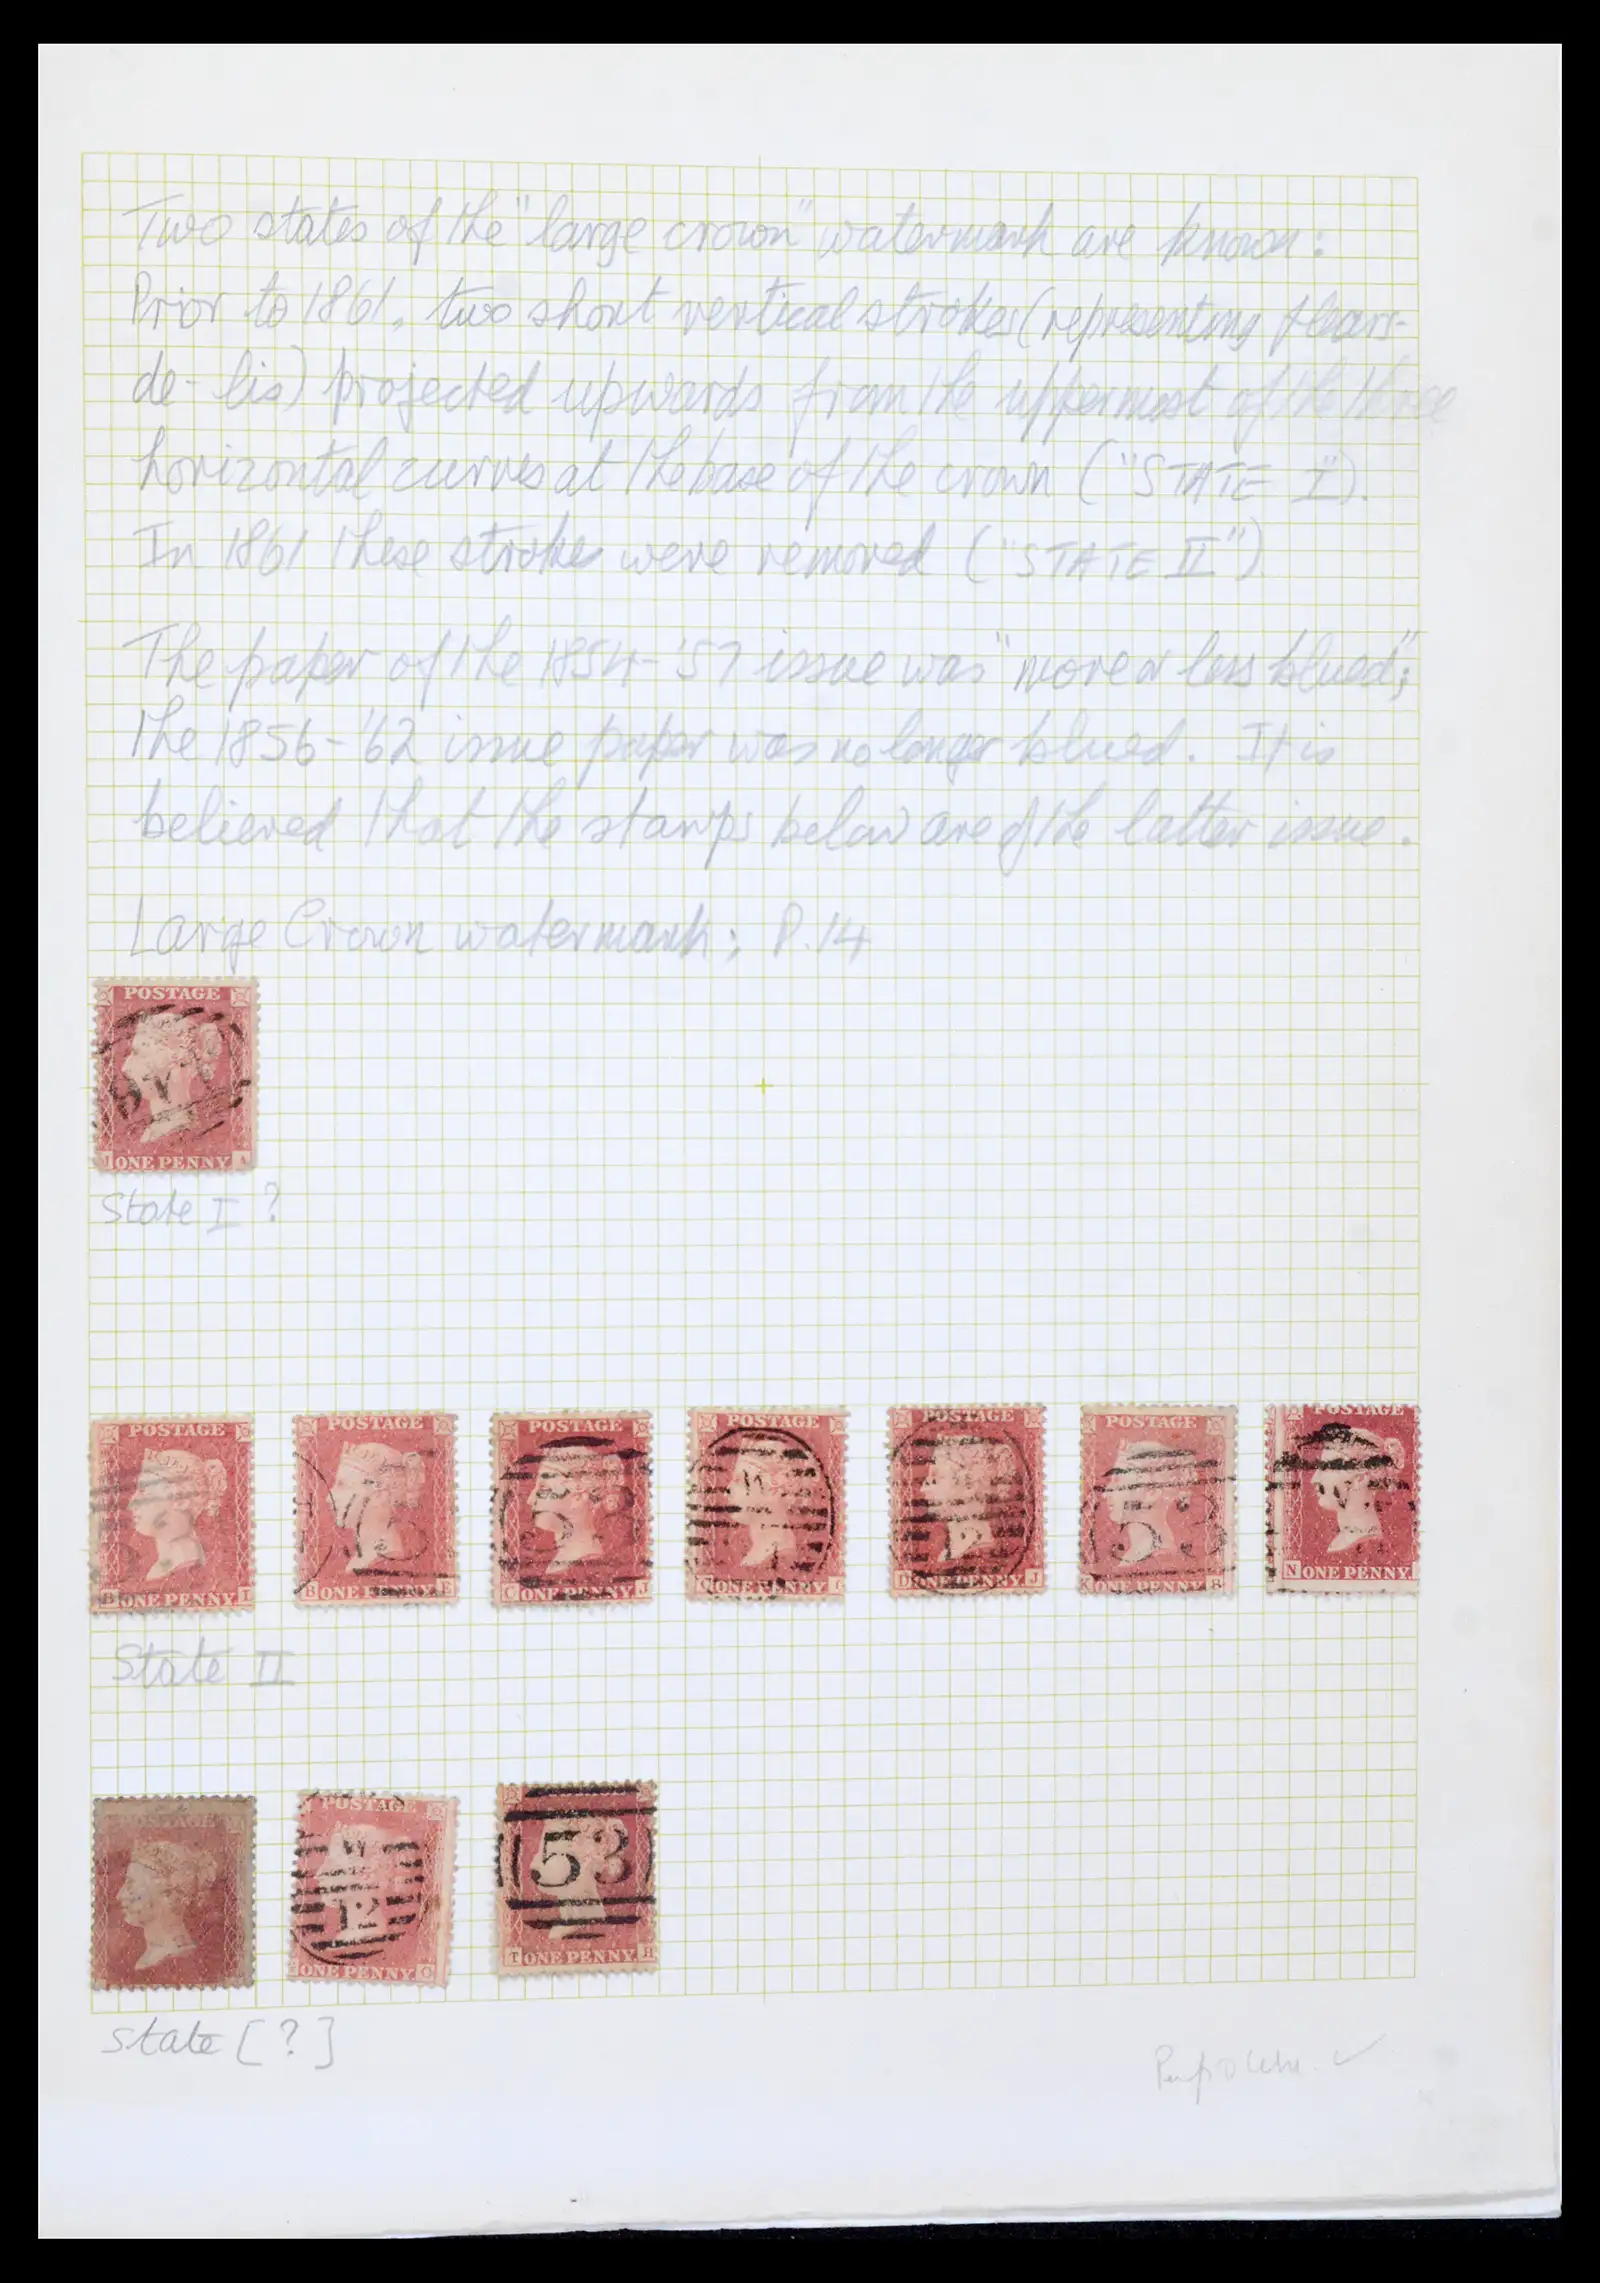 Two states of the "large crown" watermark are known:
Prior to 1861, two short vertical strokes (representing fleurs-
de-lis) projected upwards from the uppermost of the three
horizontal curves at the base of the crown ("STATE I").
In 1861 these strokes were removed ("STATE II").
The paper of the 1854-'57 issue was "more or less blued";
the 1856-'62 issue paper was no longer blued. It is
believed that the stamps below are of the latter issue.
Large Crown watermark; P.14
POSTAGE
ONE PENNY A
State I ?
POSTAGE POSTAGE POSTAGE POSTAGE POSTAGE POSTAGE POSTAGE
53 53 53
ONE PENNY I B ONE PENNY E C ONE PENNY J ONE PENNY D ONE PENNY J ONE PENNY N ONE PENNY
State II
POSTAGE POSTAGE
12 53
ONE PENNY T ONE PENNY H
State [?]